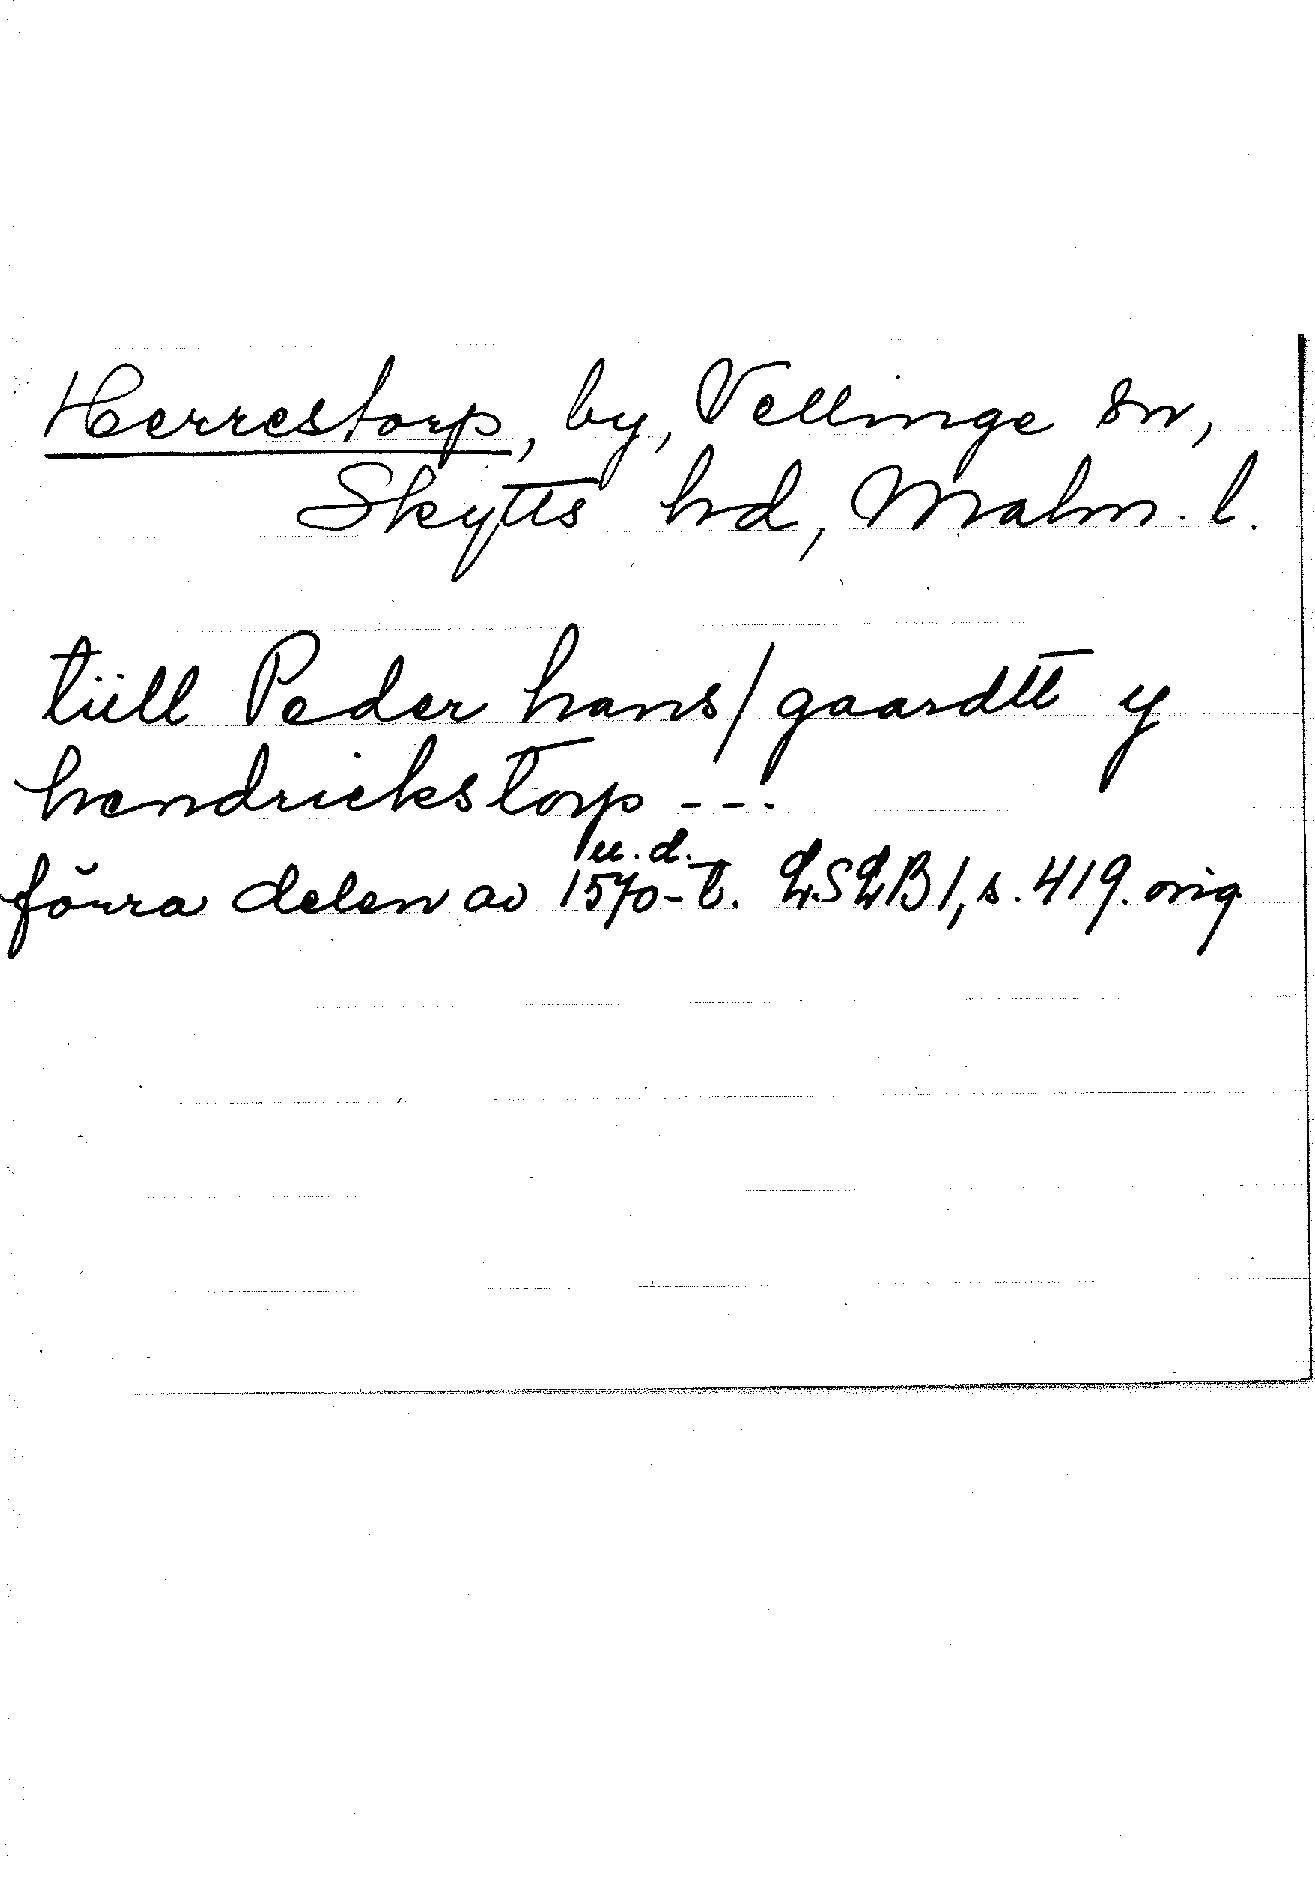 Herrestorp, by, Vellinge sn,
Skytts hd, Malm. l.
tiill Peder hans/gaardtt y
hendrickstorp ---
u.d.
förra delen av 1570-t. LSLB 1, s. 419. orig